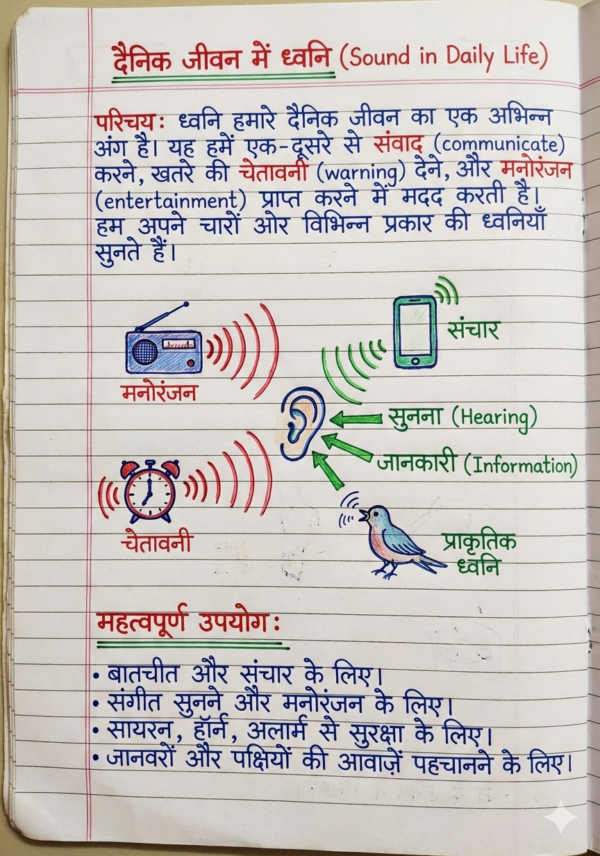 दैनिक जीवन में ध्वनि (Sound in Daily Life)
परिचय: ध्वनि हमारे दैनिक जीवन का एक अभिन्न
अंग है। यह हमें एक-दूसरे से संवाद (communicate)
करने, खतरे की चेतावनी (warning) देने, और मनोरंजन
(entertainment) प्राप्त करने में मदद करती है।
हम अपने चारों ओर विभिन्न प्रकार की ध्वनियाँ
सुनते हैं।
संचार
मनोरंजन
सुनना (Hearing)
जानकारी (Information)
चेतावनी
प्राकृतिक
ध्वनि
महत्वपूर्ण उपयोग:
• बातचीत और संचार के लिए।
• संगीत सुनने और मनोरंजन के लिए।
• सायरन, हॉर्न, अलार्म से सुरक्षा के लिए।
• जानवरों और पक्षियों की आवाज़ें पहचानने के लिए।